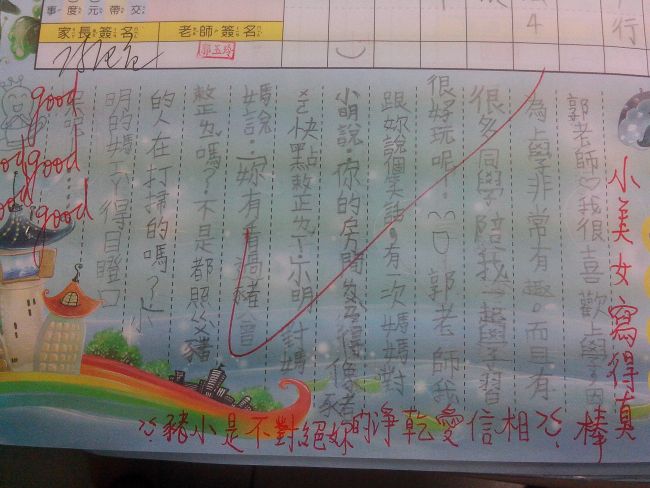 交帶元度事
家長簽名
老師簽名
郭玉玲
4
行
郭老師♡我很喜歡上學因
為上學非常有趣。而且有
很多同學陪我一起學習
很好玩呢!郭老師我
跟妳說個笑話。有一次媽媽對
小明說:你的房間得像豬
快點整小明對媽
媽說:妳有看過豬會
整嗎?不是都照豬
的人在打掃的嗎?小
明的媽得目瞪口
小美女寫得真
棒♡相信愛乾淨的妳絕對不是小豬♡
good
good
good
good